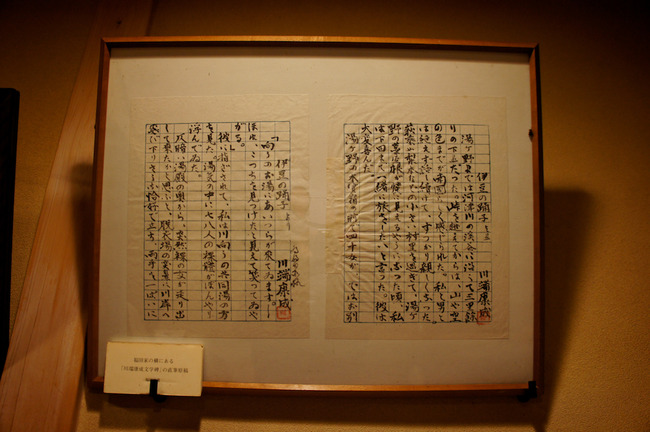 伊豆の踊子 より
川端康成
湯ヶ野までは河津川の渓谷に沿うて三里餘
りの下りだつた。峠を越えてからは、山や空
の色までが南国らしく感じられた。私と男と
は絶えず話し続けて、すつかり親しくなつた。
荻乗や梨本なぞの小さい村里を過ぎて、湯ヶ
野の藁屋根が麓に見えるやうになつた頃、私
は下田まで一緒に旅をしたいと言つた。彼は
大変喜んだ。
湯ヶ野の木賃宿の前で四十女が、ではお別
伊豆の踊子 より
川端康成
「向うのお湯にあいつらが来てゐます。
ほれ、こつちを見つけたと見えて笑つてゐや
がる。
彼に指ざされて、私は川向うの共同湯の方
を見た。湯気の中に七八人の裸體がぼんやり
浮んでゐた。
仄暗い湯殿の奥から、突然裸の女が走り出
して来たかと思ふと、脱衣場の突鼻に川岸へ
飛び下りさうな恰好で立ち、両手を一ぱいに
福田家の横にある
「川端康成文学碑」の直筆原稿